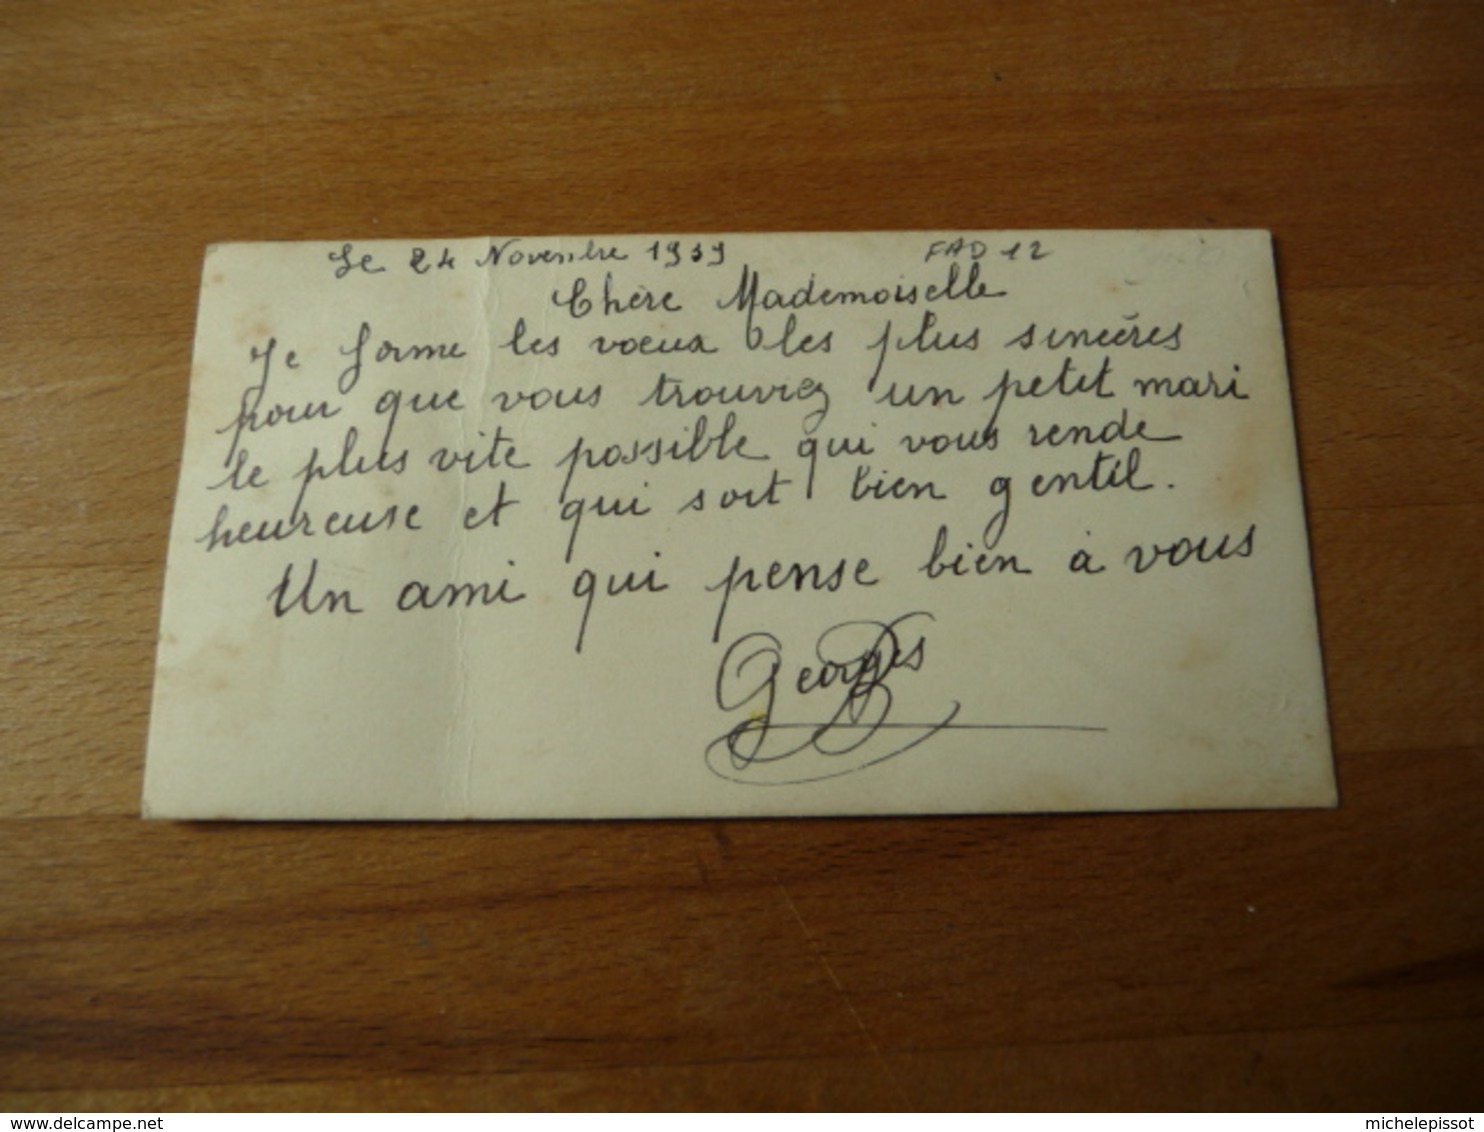 Le 24 Novembre 1939 FAD 12
Chère Mademoiselle
Je forme les voeux les plus sincères
pour que vous trouviez un petit mari
le plus vite possible qui vous rende
heureuse et qui soit bien gentil.
Un ami qui pense bien à vous
Georges
delcampe.net
michelepissot